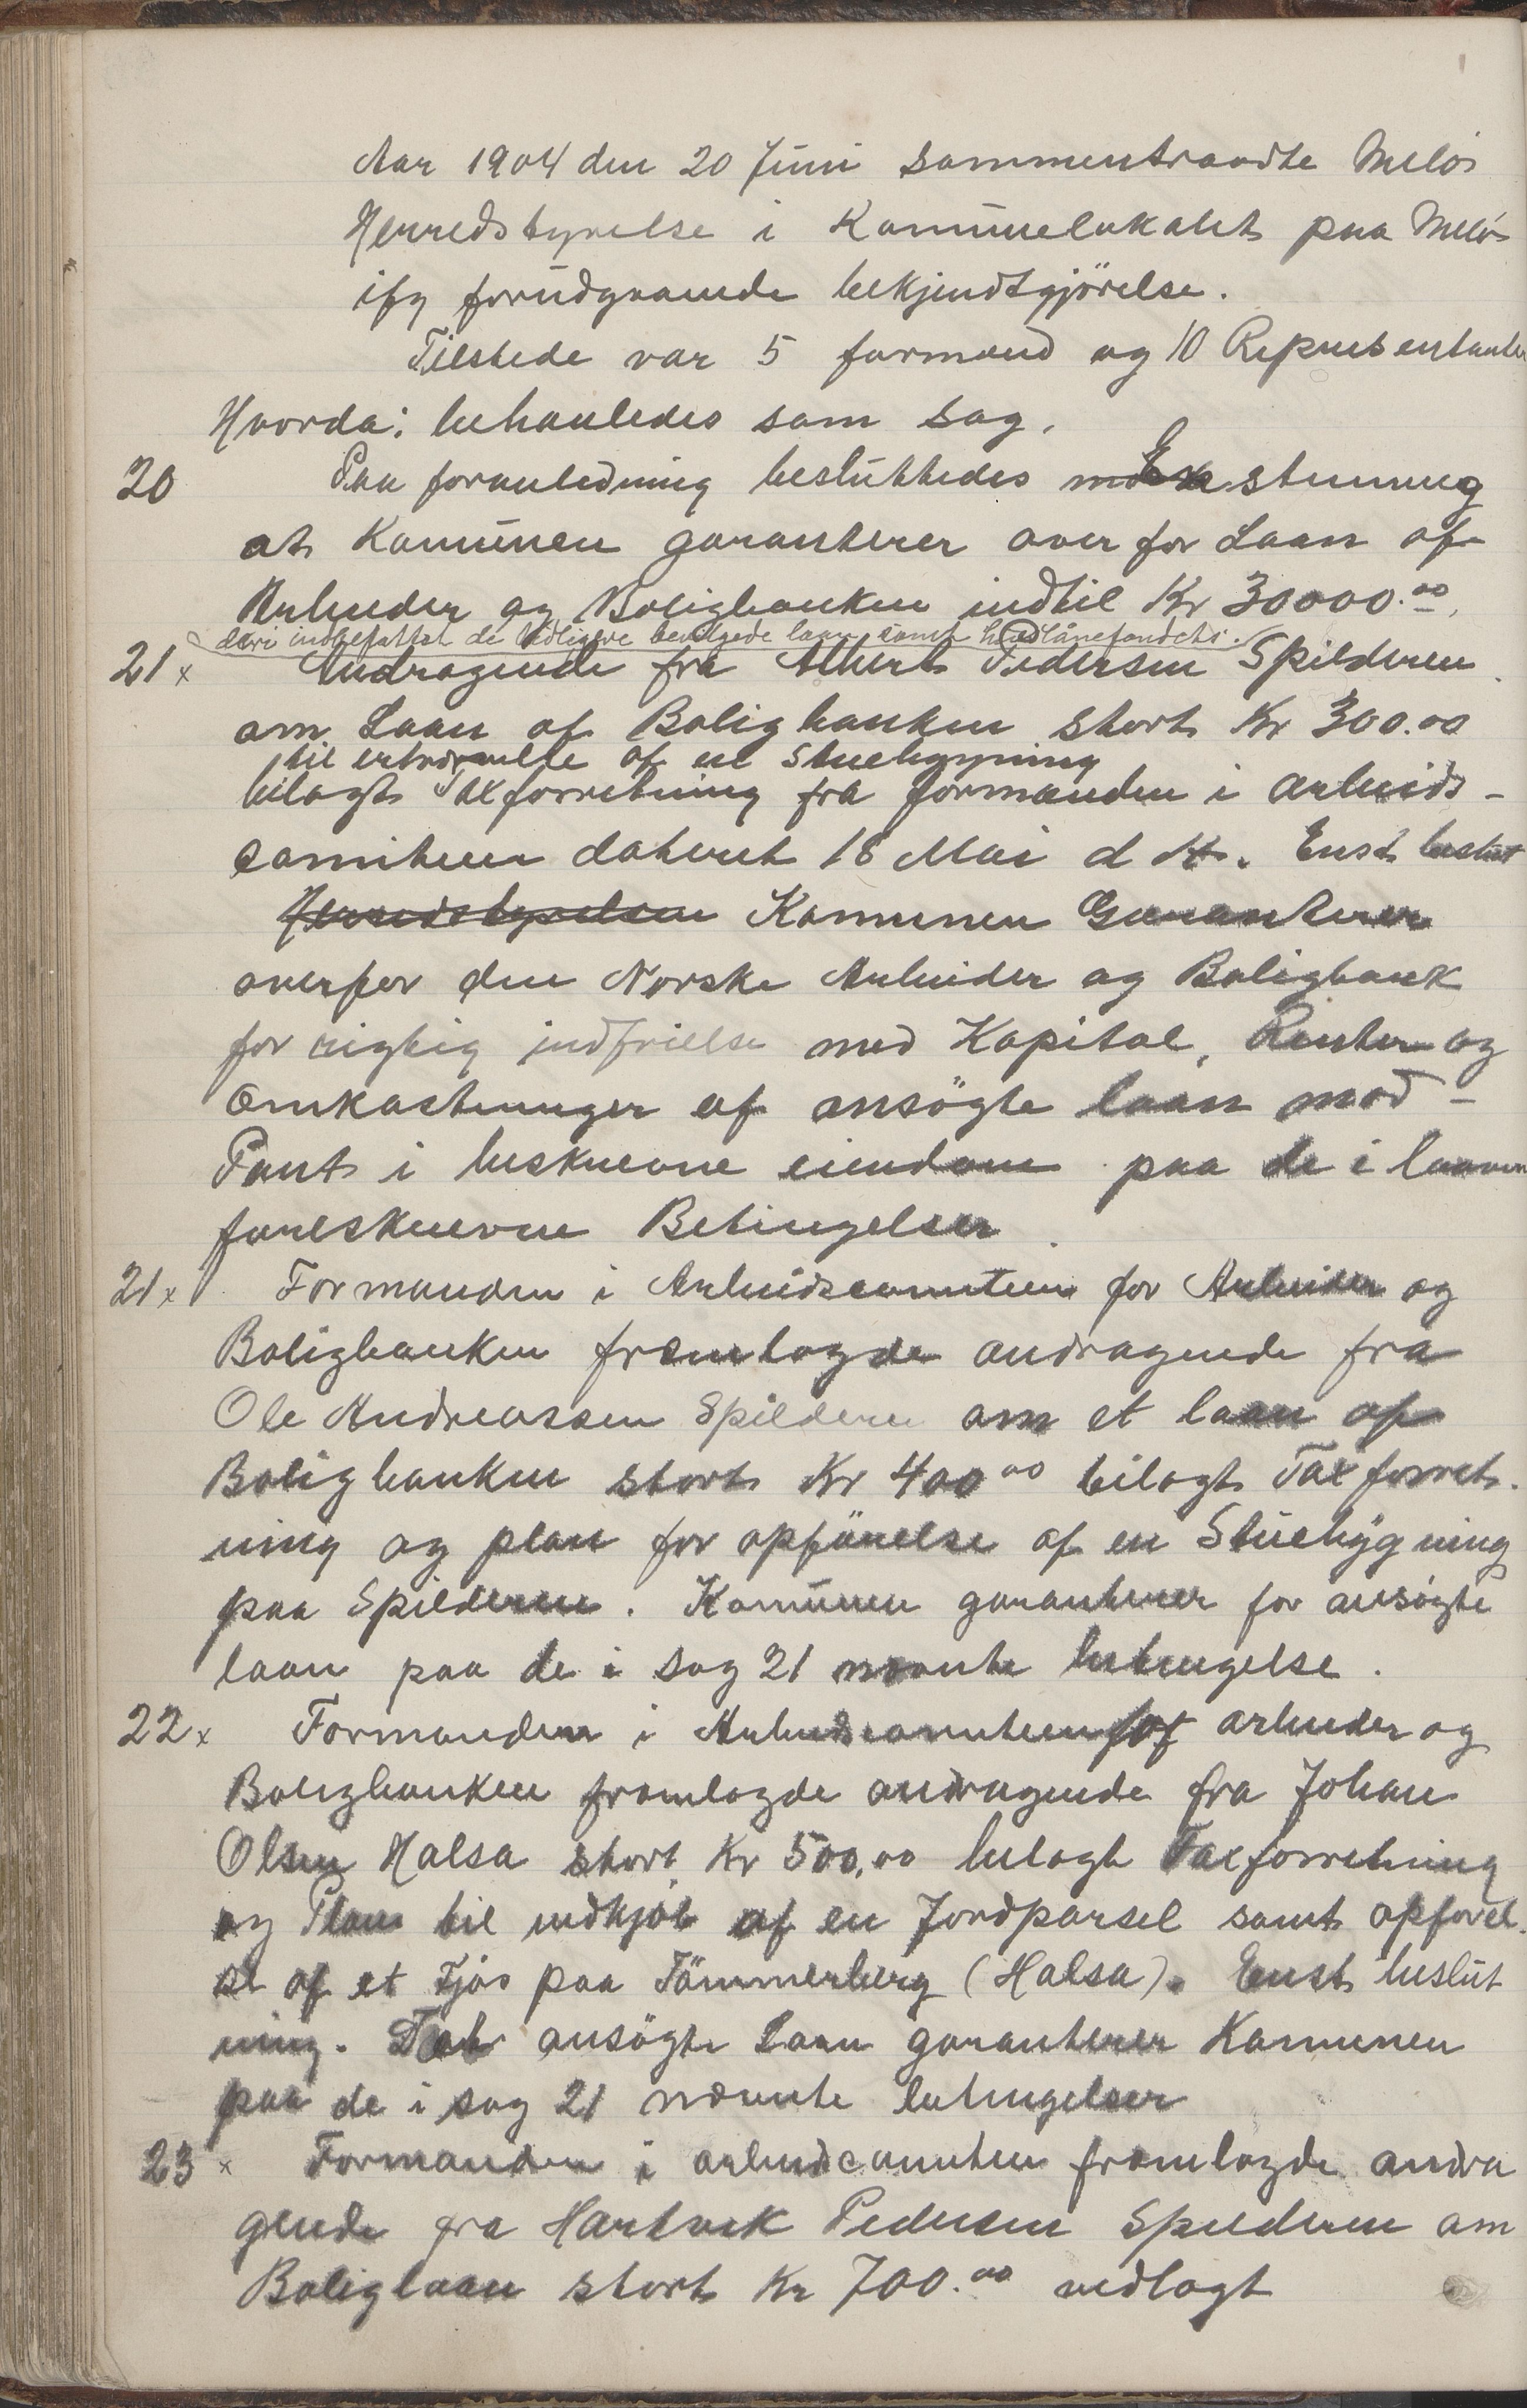 Aar 1904 den 20 Juni sammentraadte Melös
Herredstyrelse i Kommunelokalet paa Melös
ifg forudgaaende bekjendtgjörelse.
Tilstede var 5 formænd og 10 Repræsentanter
Hvorda: behanledes som sag.
20 Paa foranledning besluttedes En stemmig
at Kommunen garanterer over for Laan af
Arbeider og Boligbanken indtil Kr 30000.00
deri indbefattet de tidligere bevilgede laan samt håndlånefondets.
21 x Andragende fra Albert Pedersen Spilderen
om Laan af Boligbanken stort Kr 300.00
til erhvervelse af en Stuebygning
bilagt Taxforretning fra formanden i arbeids-
comiteen dateret 18 Mai d A. Enst beslut
Herredstyrelsen Kommunen Garanterer
overfor den Norske Arbeider og Boligbank
for rigtig indfrielse med Kapital, Renter og
Omkostninger af ansögte laan mod
Pant i beskrevne eiendom paa de i laaven
foreskrevne Betingelser
21 x Formanden i Arbeidscomiteen for Arbeider og
Boligbanken fremlagde andragende fra
Ole Andreassen Spilderen om et laan af
Boligbanken stort Kr 400 00 bilagt Taxforret-
ning og plan for opförelse af en Stuebygning
paa Spilderen. Kommunen garanterer for ansögte
laan paa de i sag 21 nævnte betingelse.
22 x Formanden i Arbeidscomiteen for arbeider og
Boligbanken fremlagde andragende fra Johan
Olsen Halsa stort Kr 500,00 bilagt Taxforretning
og Plan til indkjöb af en Jordparsel samt opförel-
se af et Fjös paa Tömmerberg (Halsa). Enst beslut
ning. Det ansögte Laan garanterer Kommunen
paa de i sag 21 nævnte betingelser
23 x Formanden i arbeidscomiteen fremlagde andra
gende fra Hartvik Pedersen Spilderen om
Boliglaan stort Kr 700.00 vedlagt